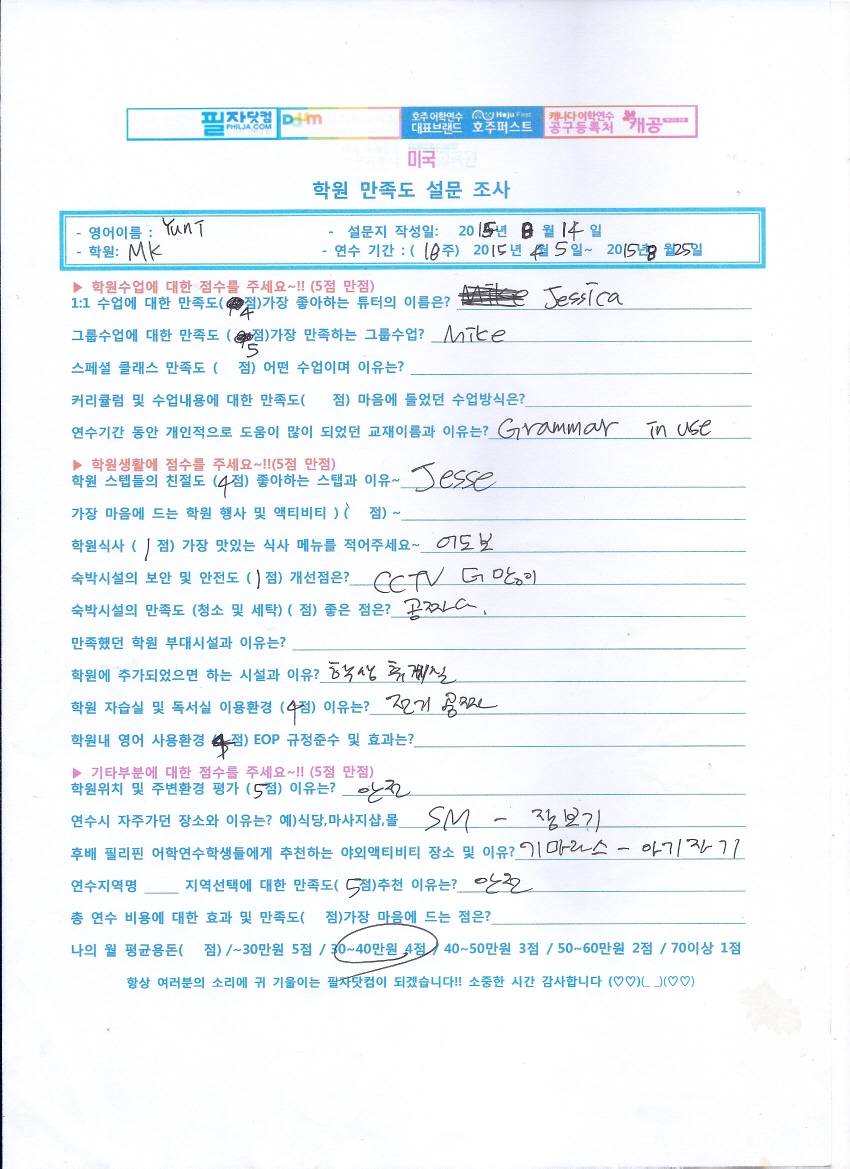 필자닷컴 PHILJA.COM Daum 호주 어학연수 대표브랜드 Hoju First 호주퍼스트 캐나다 어학연수 공구등록처 캐공
미국
학원 만족도 설문 조사
- 영어이름 : YunJ - 설문지 작성일: 2015년 8 월 14 일
- 학원: MK - 연수 기간 : ( 18주) 2015년 4월 5일~ 2015년 8월 25일
▶ 학원수업에 대한 점수를 주세요~!! (5점 만점)
1:1 수업에 대한 만족도( 4점)가장 좋아하는 튜터의 이름은? Jessica
그룹수업에 대한 만족도 ( 5점)가장 만족하는 그룹수업? Mike
스페셜 클래스 만족도 ( 점) 어떤 수업이며 이유는?
커리큘럼 및 수업내용에 대한 만족도( 점) 마음에 들었던 수업방식은?
연수기간 동안 개인적으로 도움이 많이 되었던 교재이름과 이유는? Grammar in use
▶ 학원생활에 점수를 주세요~!!(5점 만점)
학원 스텝들의 친절도 (4점) 좋아하는 스탭과 이유~ Jesse
가장 마음에 드는 학원 행사 및 액티비티 ) ( 점) ~
학원식사 ( 1 점) 가장 맛있는 식사 메뉴를 적어주세요~ 아도보
숙박시설의 보안 및 안전도 ( 1점) 개선점은? CCTV 더 많이
숙박시설의 만족도 (청소 및 세탁) ( 점) 좋은 점은? 공짜다.
만족했던 학원 부대시설과 이유는?
학원에 추가되었으면 하는 시설과 이유? 학생 휴게실
학원 자습실 및 독서실 이용환경 (4점) 이유는? 전기 공짜
학원내 영어 사용환경 (4점) EOP 규정준수 및 효과는?
▶ 기타부분에 대한 점수를 주세요~!! (5점 만점)
학원위치 및 주변환경 평가 ( 5점) 이유는? 안전
연수시 자주가던 장소와 이유는? 예)식당,마사지샵,몰 SM - 장보기
후배 필리핀 어학연수학생들에게 추천하는 야외액티비티 장소 및 이유? 기마라스 - 아기자기
연수지역명 _____ 지역선택에 대한 만족도( 5점)추천 이유는? 안전
총 연수 비용에 대한 효과 및 만족도( 점)가장 마음에 드는 점은?
나의 월 평균용돈( 점) /~30만원 5점 / 30~40만원 4점 / 40~50만원 3점 / 50~60만원 2점 / 70이상 1점
항상 여러분의 소리에 귀 기울이는 필자닷컴이 되겠습니다!! 소중한 시간 감사합니다 (♡♡)(_ _)(♡♡)